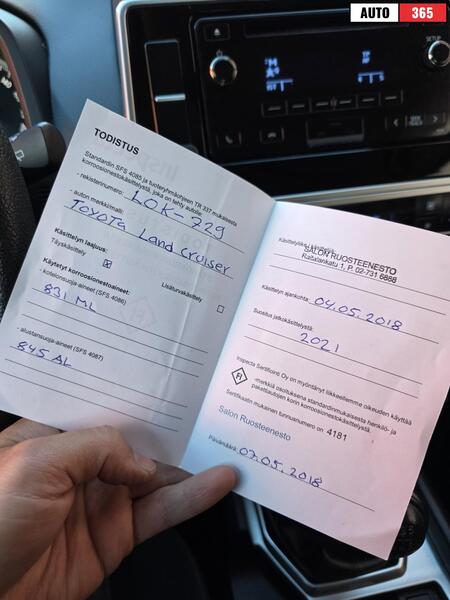 AUTO 365
SETUP
TODISTUS
Standardin SFS 4085 ja tuoteryhmäohjeen TR 337 mukaisesta
korroosionestokäsittelystä, joka on tehty autolle:
- rekisterinumero: LOK-729
- auton merkki/malli:
Toyota Land Cruiser
Käsittelyn laajuus:
Täyskäsittely
Lisäturvakäsittely
Käytetyt korroosionestoaineet:
- kotelonsuoja-aineet (SFS 4086)
831 ML
- alustansuoja-aineet (SFS 4087)
845 AL
SALON RUOSTEENESTO
Raitalankatu 1, P. 02-731 6888
Käsittelyn ajankohta 04.05.2018
Suositus jatkokäsittelystä:
2021
Inspecta Sertifiointi Oy on myöntänyt liikkeellemme oikeuden käyttää
FI -merkkiä osoituksena standardinmukaisesta henkilö- ja
pakettiautojen korin korroosionestokäsittelystä.
Sertifikaatin mukainen tunnusnumero on 4181
Salon Ruosteenesto
Päivämäärä: 07.05.2018